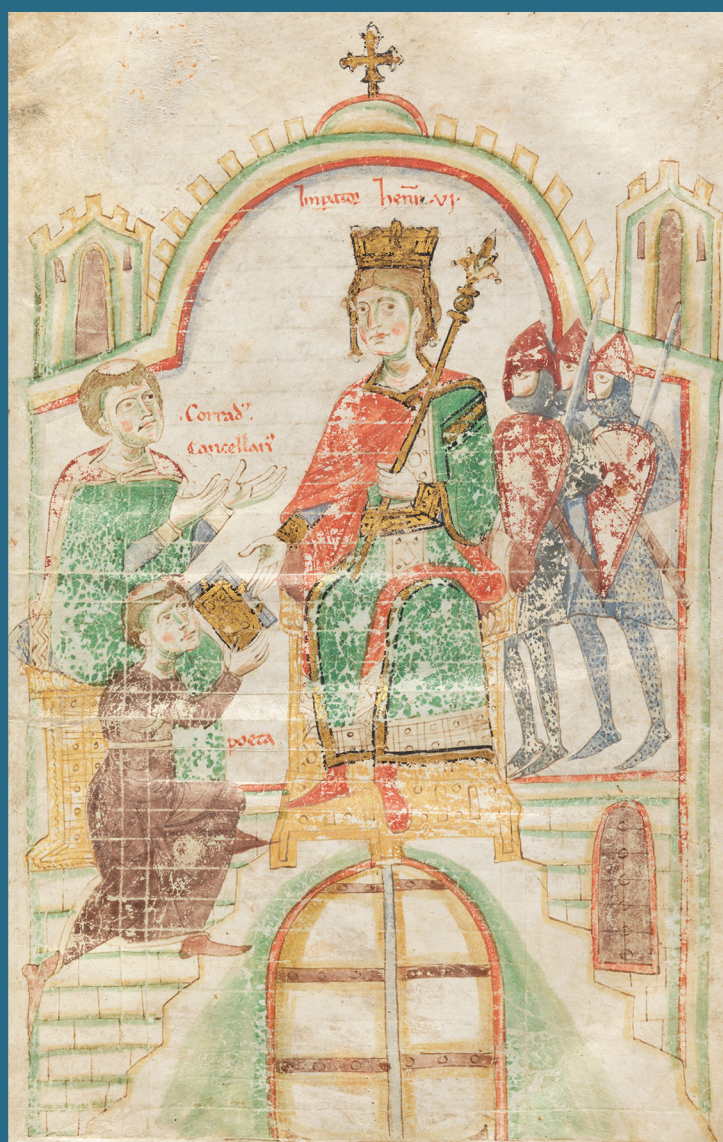 Imperator henr. VI.
.Corrad'.
Cancellari'
poeta